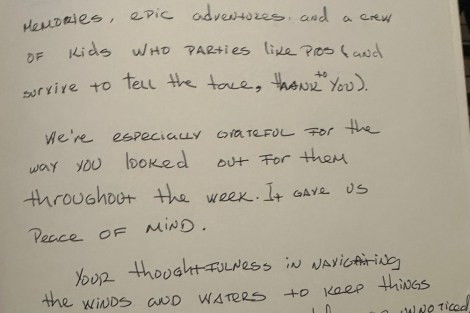 Memories, epic adventures. and a crew
of kids who parties like pros (and
survive to tell the tale, thank to You).
We're especially grateful for the
way you looked out for them
throughout the week. It gave us
Peace of mind.
Your thoughtfulness in navigating
the winds and waters to keep things
unnoticed